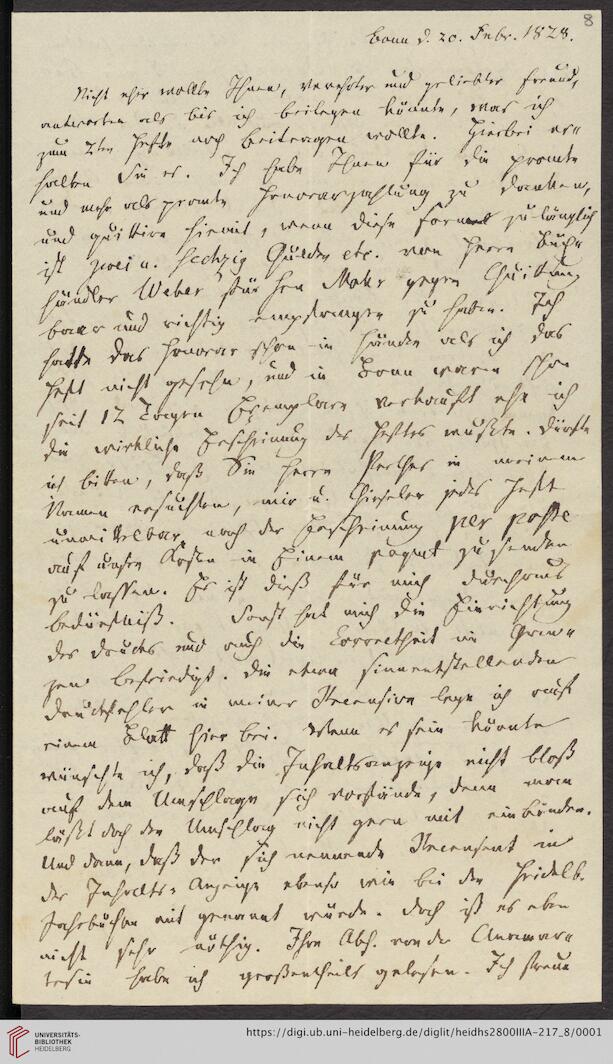 8
Bonn d. 20. Febr. 1828.
Nicht eher wollte Ihnen, verehrter und geliebter Freund,
antworten als bis ich beilegen könnte, was ich
zum 2ten Hefte noch beitragen wollte. Hierbei er=
halten Sie es. Ich habe Ihnen für die promte
und mehr als promte Honorarzahlung zu danken,
und quittire hiemit, wenn diese Formel zulänglich
ist zwei u. sechzig Gulden etc. von Herrn Buch=
händler Weber für Hrn Mohr gegen Quittung
baar und richtig empfangen zu haben. Ich
hatte das Honorar schon in Händen als ich das
Heft nicht gesehn, und in Bonn waren schon
seit 12 Tagen Exemplare verkauft ehe ich
die wirkliche Erscheinung des Heftes wußte. Dürfte
ich bitten, daß Sie Herrn Perthes in meinem
Namen ersuchten, mir u. Gieseler jedes Heft
unmittelbar nach der Erscheinung per poste
auf unsre Kosten in Einem paquet zusenden
zu lassen. Es ist dieß für mich durchaus
Bedürfniß. Sonst hat mich die Einrichtung
des Drucks und auch die Correctheit im Gan=
zen befriedigt. Die etwa sinnentstellenden
Druckfehler in meiner Recension lege ich auf
einem Blatt hier bei. Wenn es sein könnte
wünschte ich, daß die Inhaltsanzeige nicht bloß
auf dem Umschlage sich vorfände, denn man
läßt doch den Umschlag nicht gern mit einbinden.
Und dann, daß der sich nennende Recensent in
der Inhalts=Anzeige ebenso wie bei den Heidelb.
Jahrbüchern mit genannt würde. Doch ist es eben
nicht sehr nöthig. Ihre Abh. von der Anamar=
tesie habe ich großentheils gelesen. Ich freue
UNIVERSITÄTS-
BIBLIOTHEK
HEIDELBERG
https://digi.ub.uni-heidelberg.de/diglit/heidhs2800IIIA-217_8/0001